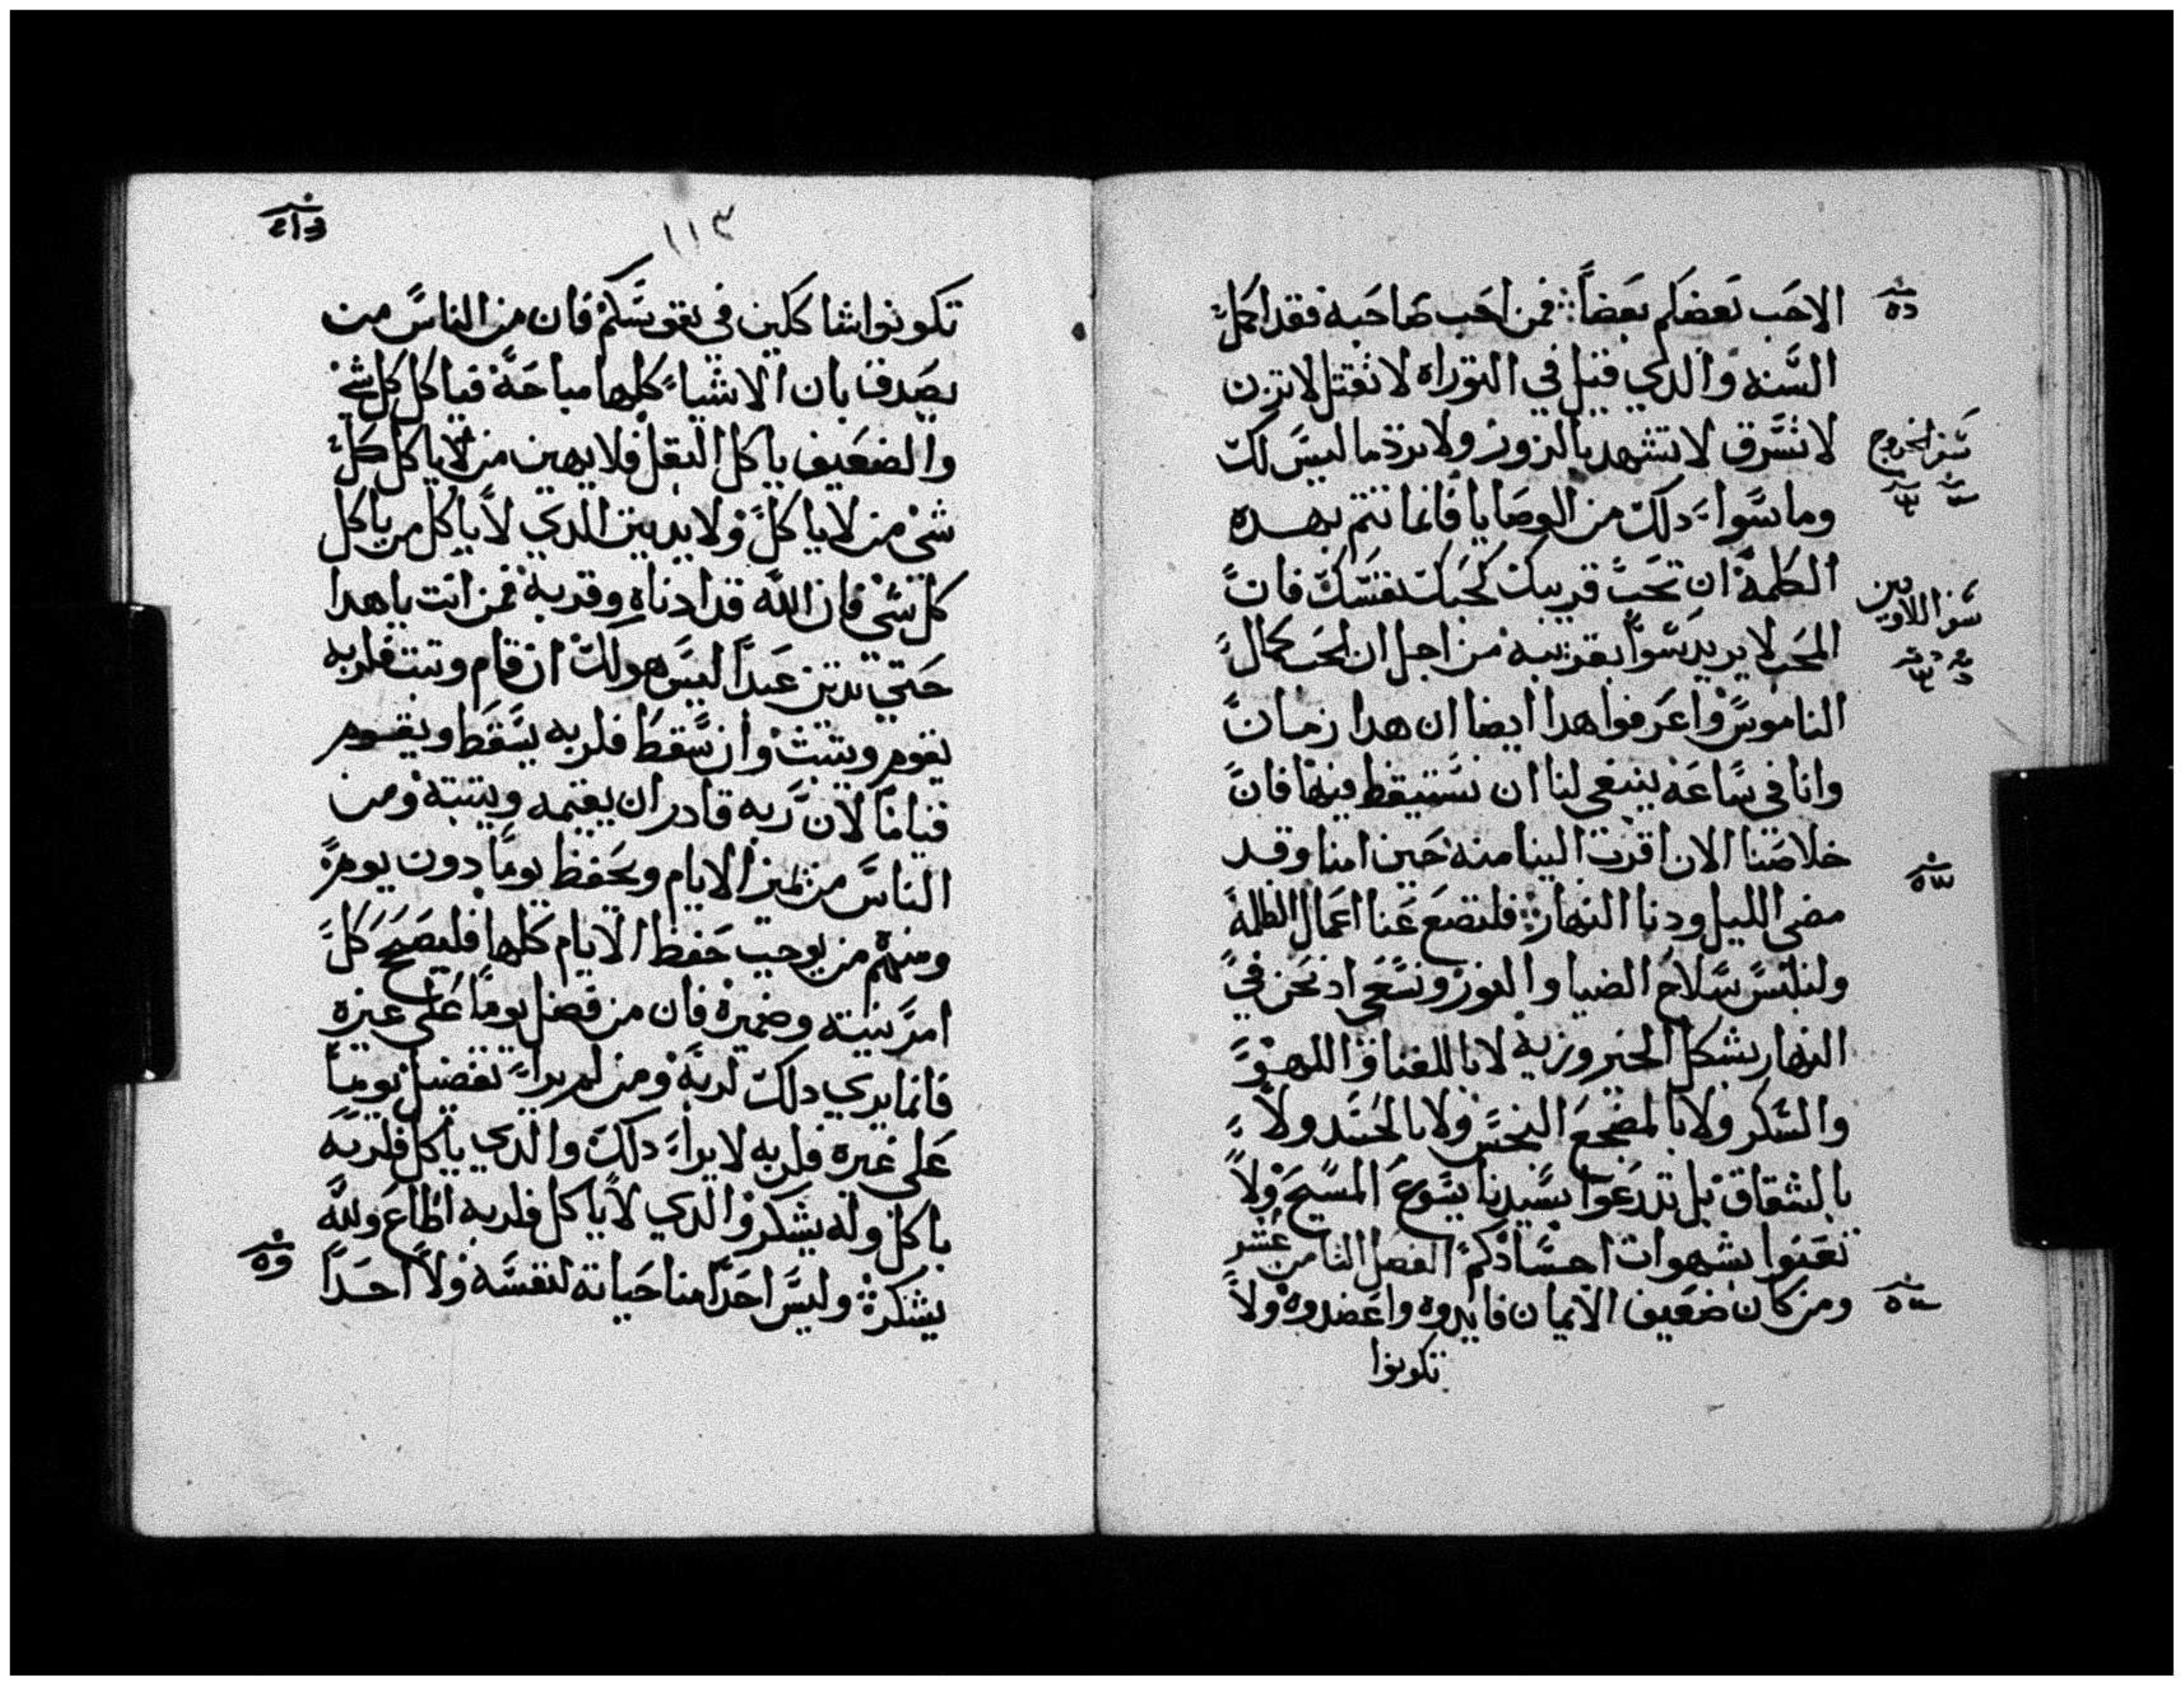 الاحَب بَعضكم بَعضاً: فمن احَب صَاحَبه فقد اكمل
السَّنه والدي قيل في التوراه لا تقتل لا تزن
لا تسَّرق لا تشهد بالزور ولا ترد ما ليسَ لك
وما سَّواء دلك من الوصَايا فانما تتم بهده
الكلمة ان تحَب قريبك كحَبك نفسَّك فان
المحَب لا يريد سَّواً بقريبه من اجل ان الحَب كمال
الناموسَّ واعرفوا هدا ايضا ان هدا زمان
وانا في سَّاعَة ينبغي لنا ان نسَّتيقظ فيها فان
خلاصَنا الان اقرب الينا منه حَين امنا وقد
مضي الليل ودنا النهار: فلنضع عَنا اعمال الظلمة
ولنلبسَّ سَّلاح الضيا والنور ونسَّعي اد نحَن في
النهار بشكل الخير وزيه لا باللغنا واللهو
والسَّكر ولا بالمضجع النجسَّ ولا بالحَسَد ولا
بالشقاق بل تدرعَوا بسَّيدنا يسَّوع المسَّيح ولا
تعَنوا بشهوات اجسَّادكم الفصل الثامن عَشر
ومن كان ضعَيف الايمان فايدوه واعَضدوه ولا
تكونوا
سَّفر الخروج
سَّفر اللاويين
١١٣
تكونوا شاكلين في نفوسَّكم فان من الناسَّ من
يصَدق بان الاشياء كلها مباحَة فياكل كل شي
والضعَيف ياكل البقل فلا يهين من لا ياكل كل
شي من لا ياكل ولا يدين الدي لا ياكل من ياكل
كل شي فان الله قد ادناه وقربه فمن انت يا هدا
حَتي تدين عَبداً ليسَ هو لك ان قام وثبت فلربه
يقوم ويثبت وان سَّقط فلربه يسَّقط ويقوم
قياماً لان ربه قادر ان يقيمه ويثبته ومن
الناسَّ من يميز الايام ويحَفظ يوماً دون يوم
ومنهم من يوجب حَفظ الايام كلها فليصَح كل
امر بنيته وضميره فان من فضل يوماً عَلي غيره
فانما يري دلك لربه ومن لم يراء تفضيل يوماً
عَلي غيره فلربه لا يراء دلك والدي ياكل فلربه
ياكل وله يشكر والدي لا ياكل فلربه اطاع ولله
يشكر وليسَّ احَداً منا حَياته لنفسَّه ولا احَداً